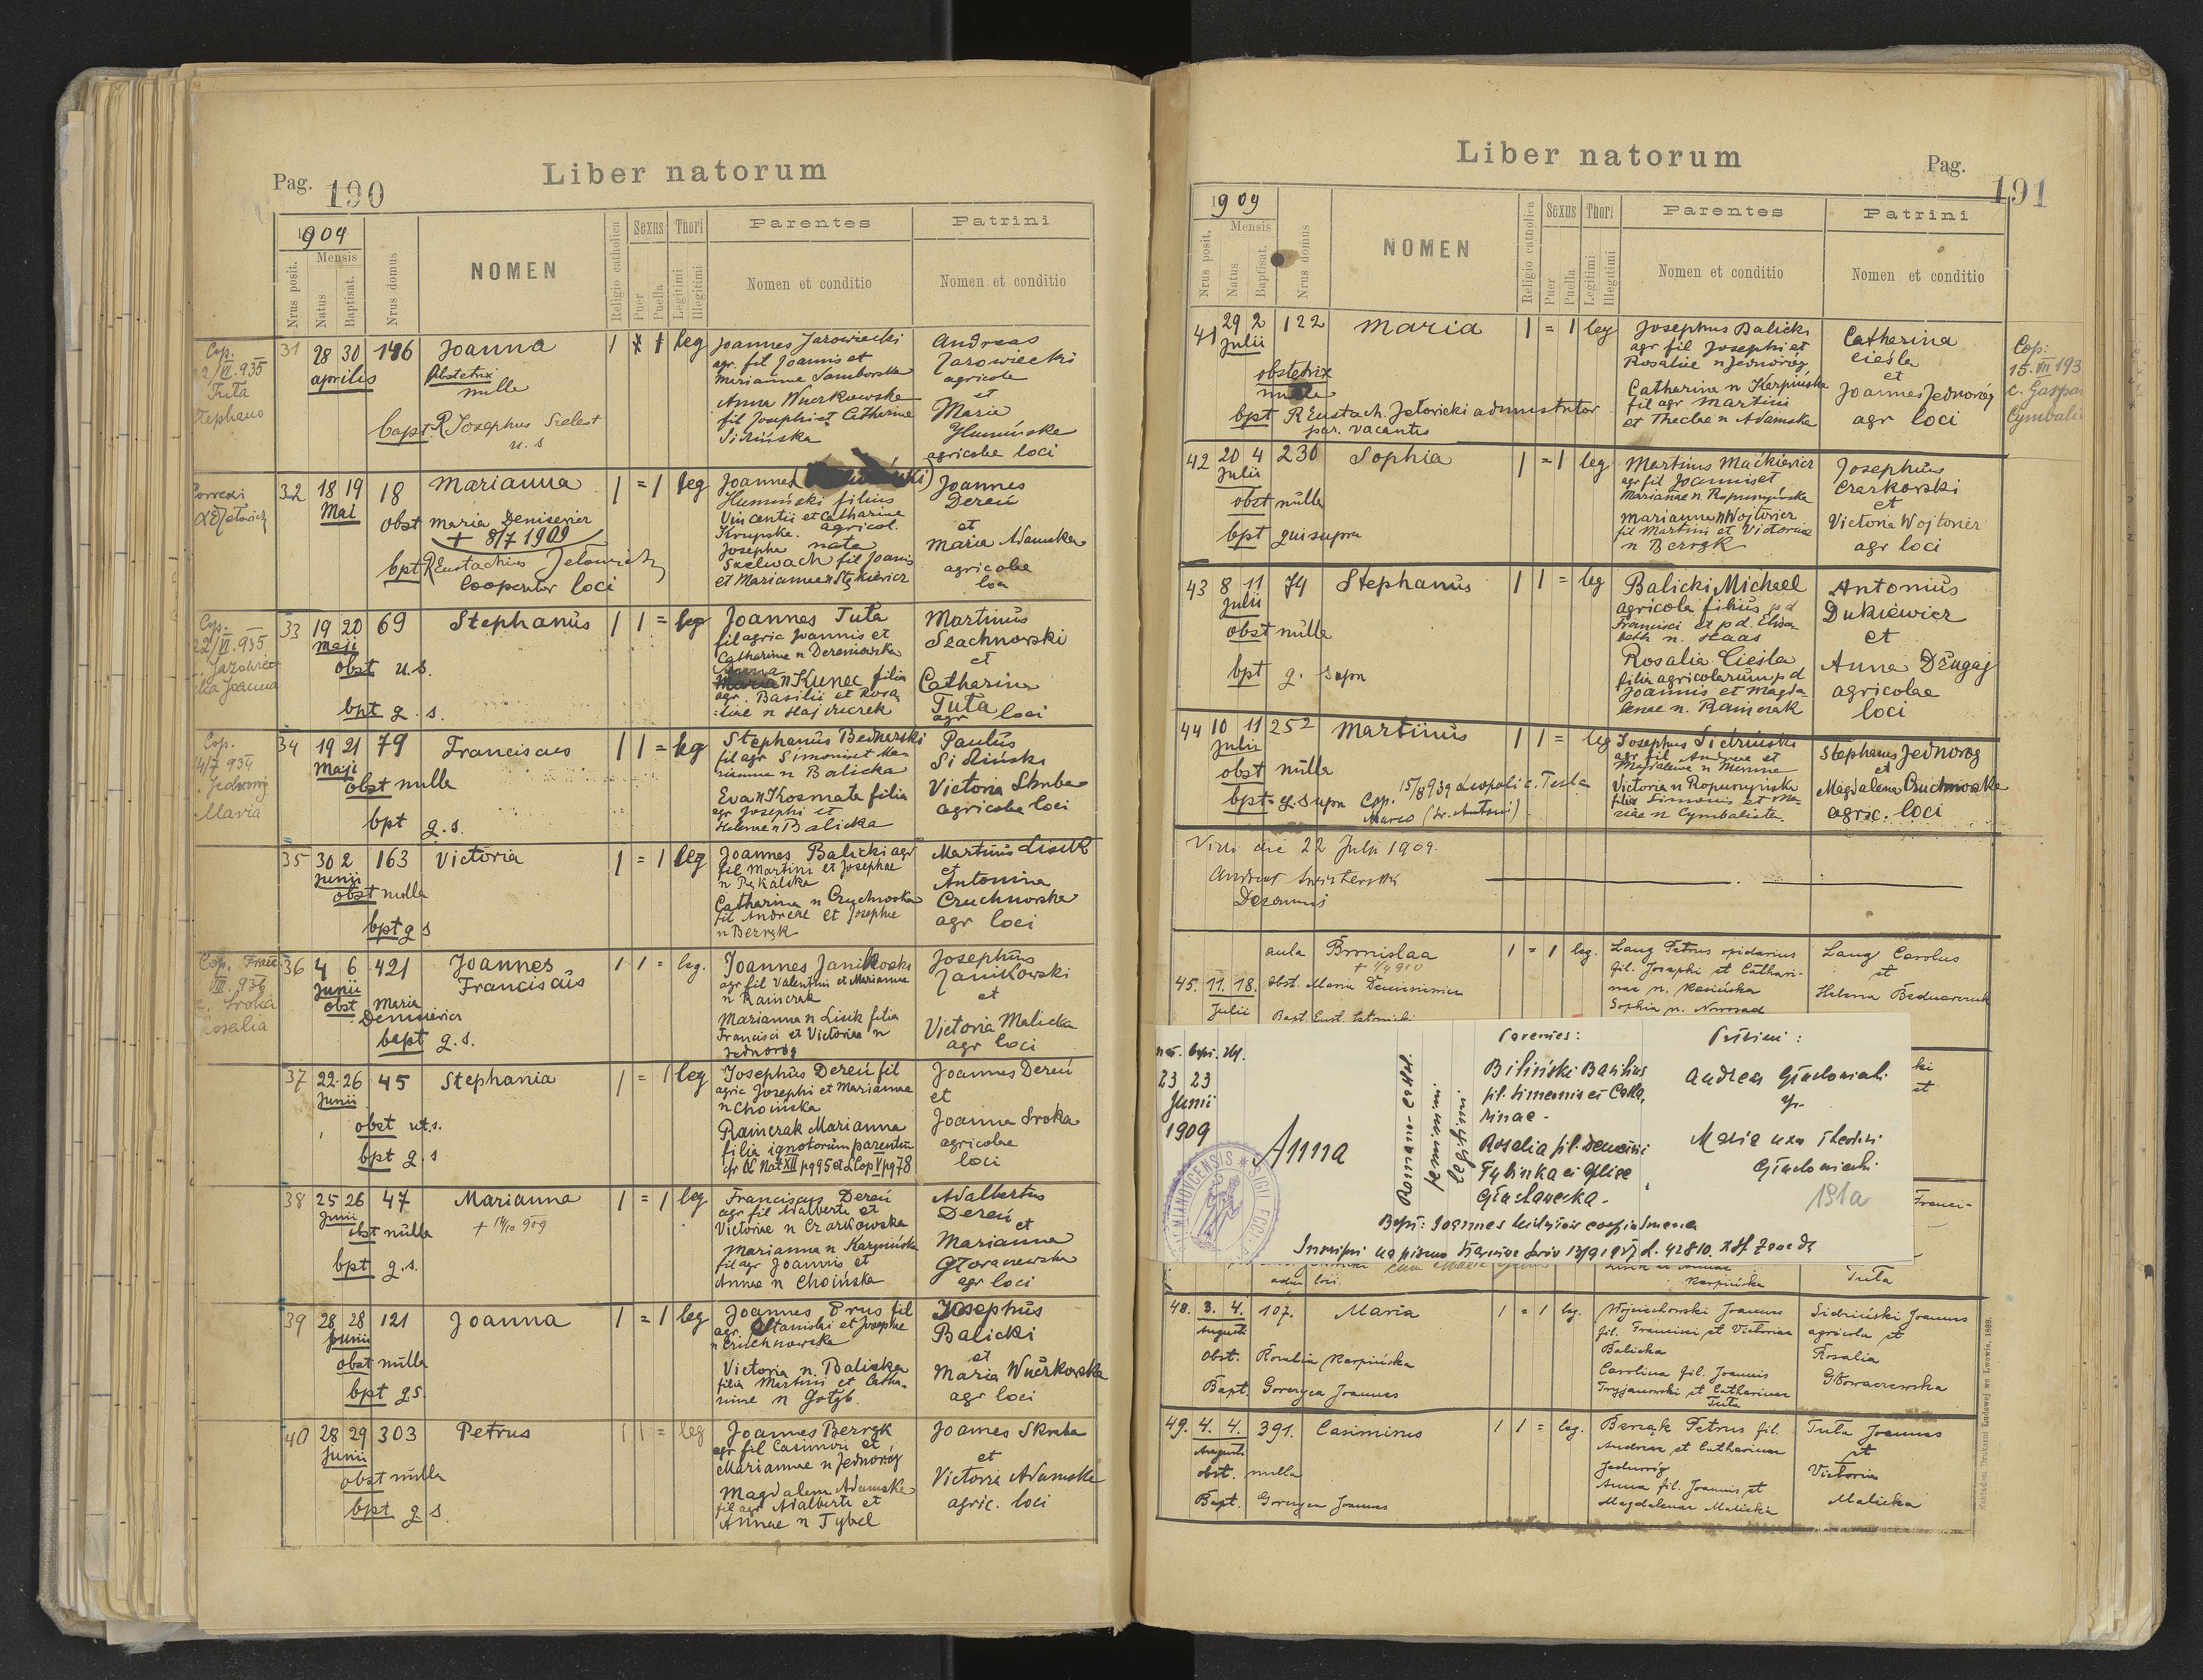 Pag. 190
Liber natorum
1909
Nrus posit.
Mensis
Natus
Baptisat.
Nrus domus
NOMEN
Religio catholica
Sexus
Puer
Puella
Thori
Legitimi
Illegitimi
Parentes
Nomen et conditio
Patrini
Nomen et conditio
Cop.
Tuta
Stephano
31 28 30 146 Joanna 1 1 leg
aprilis
Obstetrix
nulla
bapt. R Josephus Szelest
u. s
Joannes Jarowiecki
agr. fil Joannis et
Marianna Samborska
Anna Wuczkowska
fil Josephi et Catharina
Sidzińska
Andreas
Jarowiecki
agricola
et
Maria
Humińska
agricolae loci
Correxi
32 18 19 18 Marianna 1 = 1 leg
Mai
obst Maria Denisewicz
+ 8/7 1909
bpt R Eustachius Jełowicki
Cooperator loci
Joannes
Humiński filius
Vincentii et Catharina
Krupska. agricol.
Josepha nata
Szelwach fil Joannis
Joannes
Dereń
et
Maria Adamska
agricolae
loci
Cop.
22/VI.935
Joanna
33 19 20 69 Stephanus 1 1 = leg
Maji
obst u.s.
bpt q. s.
Joannes Tuta
fil agric Joannis et
Catharina n Dereniowska
Anna
n Kunec filia
agr. Basilii et Rosa-
liae n Hajduczek
Martinus
Szachnowski
et
Catharina
Tuta
agr loci
Cop.
4/7 934
Jednoróg
Maria
34 19 21 79 Franciscus 1 1 = leg
Maji
obst nulla
bpt q.s.
Stephanus Bednarski
fil agr Simonis et Ma-
rianna n Balicka
Eva n Kosmata filia
agr Josephi et
Helenae n Balicka
Paulus
Sidziński
Victoria Skruba
agricolae loci
35 30 2 163 Victoria 1 = 1 leg
Junii
obst nulla
bpt q s
Joannes Balicki agr
fil Martini et Josephae
n Pękalska
Catharina n Czuchnowska
fil Andreae et Josephae
n Berzęk
Martinus Lisik
et
Antonina
Czuchnowska
agr loci
Cop.
VII. 936
c. Sroka
Rosalia
36 4 6 421 Joannes 1 1 = leg.
Junii
Franciscus
obst Maria
Denisewicz
bapt q.s.
Joannes Janikowski
agr fil Valentini et Marianna
n Rainczak
Marianna n Lisik filia
Francisci et Victoriae n
Jednoróg
Josephus
Janikowski
et
Victoria Malicka
agr loci
37 22 26 45 Stephania 1 = 1 leg
Junii
obst ut.s.
bpt q. s
Josephus Dereń fil
agric Josephi et Marianna
n Choińska
Rainczak Marianna
filia ignotorum parentum
cfr L Nat XII pg 95 et L Cop V pg 78
Joannes Dereń
et
Joanna Sroka
agricolae
loci
38 25 26 47 Marianna 1 = 1 leg
Junii
+ 14/10 909
obst nulla
bpt q.s.
Franciscus Dereń
agr fil Adalberti et
Victoriae n Czarkowska
Marianna n Karpińska
fil agr Joannis et
Annae n Choińska
Adalbertus
Dereń
et
Marianna
agr loci
39 28 28 121 Joanna 1 = 1 leg
Junii
obst nulla
bpt q.s.
Joannes Prus fil
agr. Stanislai et Josephae
n Czuchnowska
Victoria n. Balicka
filia Martini et Catha-
rinae n Gołąb.
Josephus
Balicki
et
Maria Wuczkowska
agr loci
40 28 29 303 Petrus 1 1 = leg
Junii
obst nulla
bpt q s.
Joannes Berzęk
agr fil Casimiri et
Mariannae n Jednoróg
Magdalena Adamska
fil agr Adalberti et
Annae n Tybel
Joannes Skruba
et
Victoria Adamska
agric. loci
Liber natorum
Pag. 191
1909
Nrus posit.
Mensis
Natus
Baptisat.
Nrus domus
NOMEN
Religio catholica
Sexus
Puer
Puella
Thori
Legitimi
Illegitimi
Parentes
Nomen et conditio
Patrini
Nomen et conditio
41 29 2 122 Maria 1 = 1 leg
Julii
obstetrix
nulla
bpt R Eustach. Jełowicki administrator
par. vacantis
Josephus Balicki
agr fil Josephi et
Rosaliae n Jednoróg
Catharina n Karpińska
fil agr Martini
et Theclae n Adamska
Catharina
Cieśla
et
Joannes Jednoróg
agr loci
Cop:
15. VII 193
c. Gaspar
Cymbali
42 20 4 230 Sophia 1 = 1 leg
Julii
obst nulla
bpt qui supra
Martinus Maćkiewicz
agr fil Joannis et
Marianna n Ropuszyńska
Marianna n Wojtowicz
fil Martini et Victoriae
n Berzęk
Josephus
Czarkowski
et
Victoria Wojtowicz
agr loci
43 8 11 74 Stephanus 1 1 = leg
Julii
obst nulla
bpt q. supra
Balicki Michael
agricola filius pd
Francisci et pd. Elisa-
beth n. Haas
Rosalia Cieśla
filia agricolarum pd
Joannis et Magda-
lenae n. Rainczak
Antonius
Dukiewicz
et
Anna Długaj
agricolae
loci
44 10 11 252 Martinus 1 1 = leg
Julii
obst nulla
bpt q. supra Cop. 15/8 939 Leopoli c. Tesla
Maria (s. Antoni)
Josephus Sidziński
agr fil Andreae et
Victoria n Ropuszyńska
filia Simonis et Ma-
riae n Cymbalista.
Stephanus Jednoróg
et
Magdalena Czuchnowska
agric. loci
Vidi die 22 Julii 1909.
Decanus
45. 11. 18. aula Bronislaa 1 = 1 leg.
Julii
obst. Maria Denisiewicz
Bapt. Eust. Jełowicki
Lang Petrus
fil. Josephi et Cathari-
nae n. Kasińska
Sophia n. Nowosad
Lang Carolus
et
Helena Bednarczuk
nat. bapt.
23 23
Junii
1909
Anna
Romano-cath.
feminini
legitimi
Parentes:
Biliński Basilius
fil. Simeonis et Catha-
rinae -
Rosalia fil. Dementii
Tybinka et
Patrini:
Andreas
Maria uxor Theodori
191a
Bapt: Joannes
ki
et
Franci-
Karpińska
Tuta
48. 3. 4. 107. Maria 1 = 1 leg.
Augusti
Obst. Rosalia Karpińska
Bapt. Goreyca Joannes
Wojciechowski Joannes
fil. Francisci et Victoriae
Balicka
Carolina fil. Joannis
Tryjanowski et Catharinae
Tuta
Sidziński Joannes
agricola et
Rosalia
Głowaczewska
49. 4. 4. 391. Casimirus 1 1 = leg.
Augusti
obst. nulla
Bapt. Goreyca Joannes
Berząk Petrus fil.
Andreae et Catharinae
Jednoróg
Anna fil. Joannis et
Magdalenae Malicki
Tuta Joannes
et
Victoria
Malicka